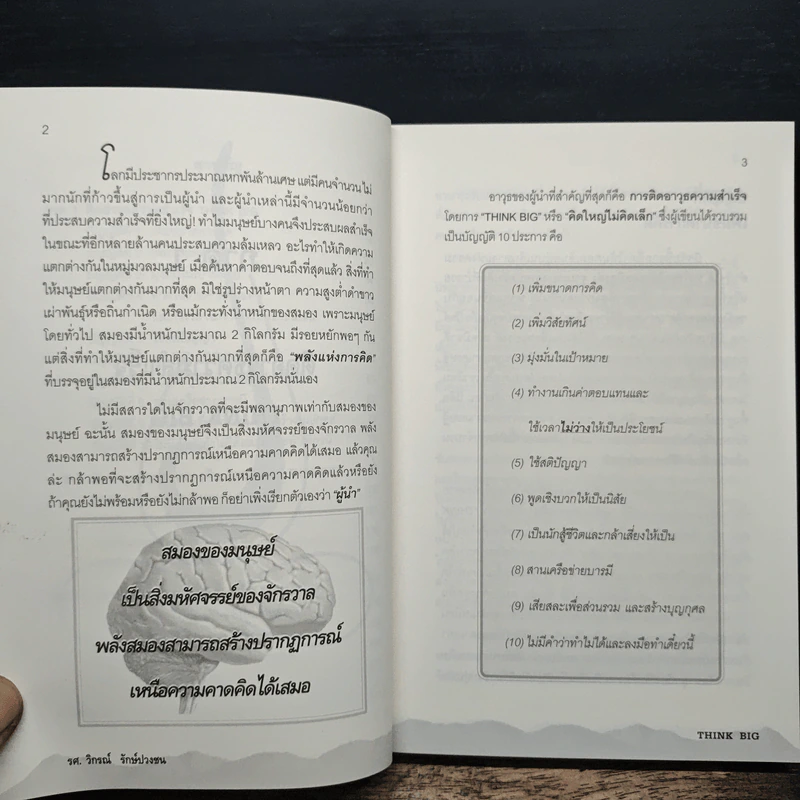 2
โลกมีประชากรประมาณหกพันล้านเศษ แต่มีคนจำนวนไม่
มากนักที่ก้าวขึ้นสู่การเป็นผู้นำ และผู้นำเหล่านี้มีจำนวนน้อยกว่า
ที่ประสบความสำเร็จที่ยิ่งใหญ่! ทำไมมนุษย์บางคนจึงประสบผลสำเร็จ
ในขณะที่อีกหลายล้านคนประสบความล้มเหลว อะไรทำให้เกิดความ
แตกต่างกันในหมู่มวลมนุษย์ เมื่อค้นหาคำตอบจนถึงที่สุดแล้ว สิ่งที่ทำ
ให้มนุษย์แตกต่างกันมากที่สุด มิใช่รูปร่างหน้าตา ความสูงต่ำดำขาว
เผ่าพันธุ์หรือถิ่นกำเนิด หรือแม้กระทั่งน้ำหนักของสมอง เพราะมนุษย์
โดยทั่วไป สมองมีน้ำหนักประมาณ 2 กิโลกรัม มีรอยหยักพอๆ กัน
แต่สิ่งที่ทำให้มนุษย์แตกต่างกันมากที่สุดก็คือ "พลังแห่งการคิด"
ที่บรรจุอยู่ในสมองที่มีน้ำหนักประมาณ 2 กิโลกรัมนั่นเอง
ไม่มีสสารใดในจักรวาลที่จะมีพลานุภาพเท่ากับสมองของ
มนุษย์ ฉะนั้น สมองของมนุษย์จึงเป็นสิ่งมหัศจรรย์ของจักรวาล พลัง
สมองสามารถสร้างปรากฏการณ์เหนือความคาดคิดได้เสมอ แล้วคุณ
ล่ะ กล้าพอที่จะสร้างปรากฏการณ์เหนือความคาดคิดแล้วหรือยัง
ถ้าคุณยังไม่พร้อมหรือยังไม่กล้าพอ ก็อย่าเพิ่งเรียกตัวเองว่า "ผู้นำ"
สมองของมนุษย์
เป็นสิ่งมหัศจรรย์ของจักรวาล
พลังสมองสามารถสร้างปรากฏการณ์
เหนือความคาดคิดได้เสมอ
รศ. วิกรณ์ รักษ์ปวงชน
3
อาวุธของผู้นำที่สำคัญที่สุดก็คือ การติดอาวุธความสำเร็จ
โดยการ "THINK BIG" หรือ "คิดใหญ่ไม่คิดเล็ก" ซึ่งผู้เขียนได้รวบรวม
เป็นบัญญัติ 10 ประการ คือ
(1) เพิ่มขนาดการคิด
(2) เพิ่มวิสัยทัศน์
(3) มุ่งมั่นในเป้าหมาย
(4) ทำงานเกินค่าตอบแทนและ
ใช้เวลาไม่ว่างให้เป็นประโยชน์
(5) ใช้สติปัญญา
(6) พูดเชิงบวกให้เป็นนิสัย
(7) เป็นนักสู้ชีวิตและกล้าเสี่ยงให้เป็น
(8) สานเครือข่ายบารมี
(9) เสียสละเพื่อส่วนรวม และสร้างบุญกุศล
(10) ไม่มีคำว่าทำไม่ได้และลงมือทำเดี๋ยวนี้
THINK BIG